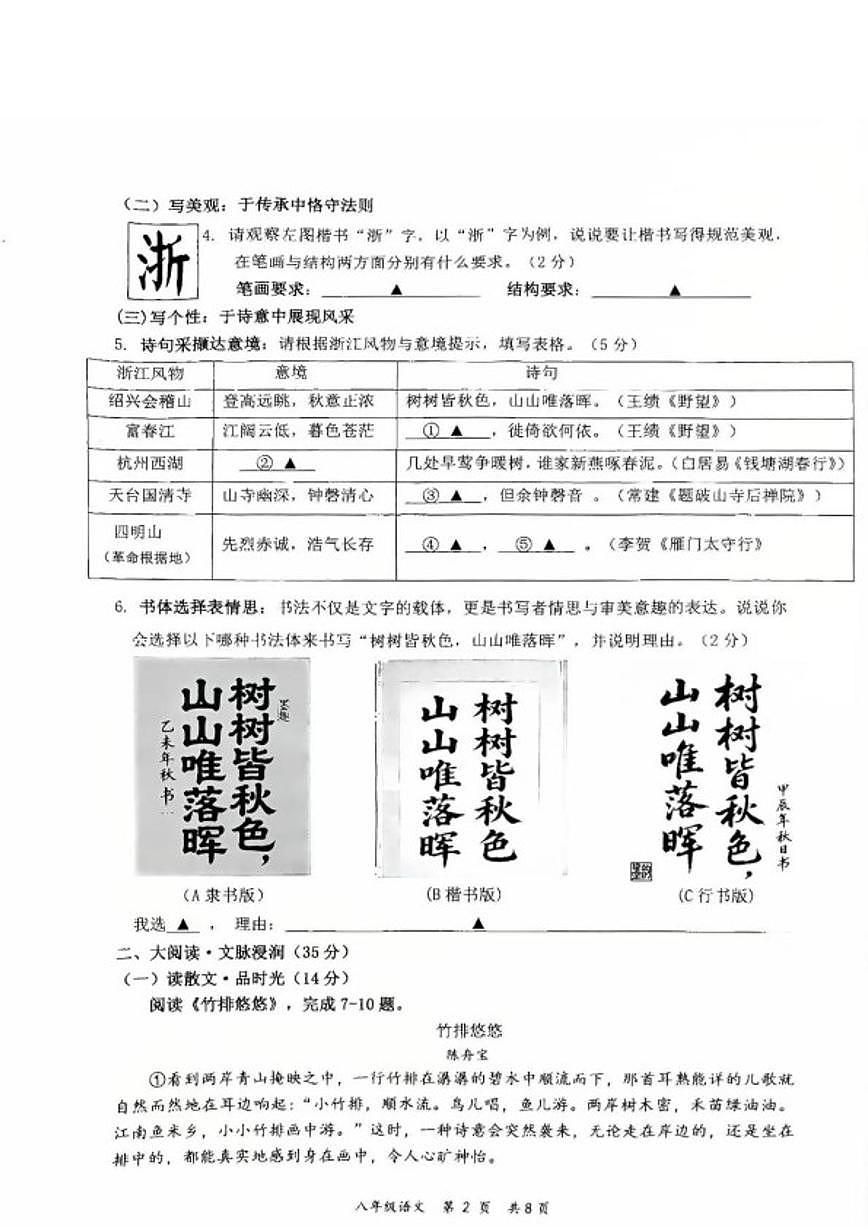 (二)写美观：于传承中恪守法则
浙
4. 请观察左图楷书“浙”字，以“浙”字为例，说说要让楷书写得规范美观，
在笔画与结构两方面分别有什么要求。（2分）
笔画要求：▲ 结构要求：▲
(三)写个性：于诗意中展现风采
5. 诗句采撷达意境：请根据浙江风物与意境提示，填写表格。（5分）
浙江风物 意境 诗句
绍兴会稽山 登高远眺，秋意正浓 树树皆秋色，山山唯落晖。（王绩《野望》）
富春江 江阔云低，暮色苍茫 ① ▲ ，徙倚欲何依。（王绩《野望》）
杭州西湖 ② ▲ 几处早莺争暖树，谁家新燕啄春泥。（白居易《钱塘湖春行》）
天台国清寺 山寺幽深，钟磬清心 ③ ▲ ，但余钟磬音 。（常建《题破山寺后禅院》）
四明山
（革命根据地） 先烈赤诚，浩气长存 ④ ▲ ， ⑤ ▲ 。（李贺《雁门太守行》
6. 书体选择表情思：书法不仅是文字的载体，更是书写者情思与审美意趣的表达。说说你
会选择以下哪种书法体来书写“树树皆秋色，山山唯落晖”，并说明理由。（2分）
树树皆秋色，
山山唯落晖
乙未年秋书
树树皆秋色
山山唯落晖
甲辰年秋日书
树树皆秋色，
山山唯落晖
（A 隶书版） (B 楷书版) (C 行书版)
我选 ▲ ， 理由：▲
二、大阅读·文脉浸润（35分）
（一）读散文·品时光（14分）
阅读《竹排悠悠》，完成7-10题。
竹排悠悠
陈舟宝
①看到两岸青山掩映之中，一行竹排在潺潺的碧水中顺流而下，那首耳熟能详的儿歌就
自然而然地在耳边响起：“小竹排，顺水流。鸟儿唱，鱼儿游。两岸树木密，禾苗绿油油。
江南鱼米乡，小小竹排画中游。”这时，一种诗意会突然袭来，无论走在岸边的，还是坐在
排中的，都能真实地感到身在画中，令人心旷神怡。
八年级语文 第2页 共8页